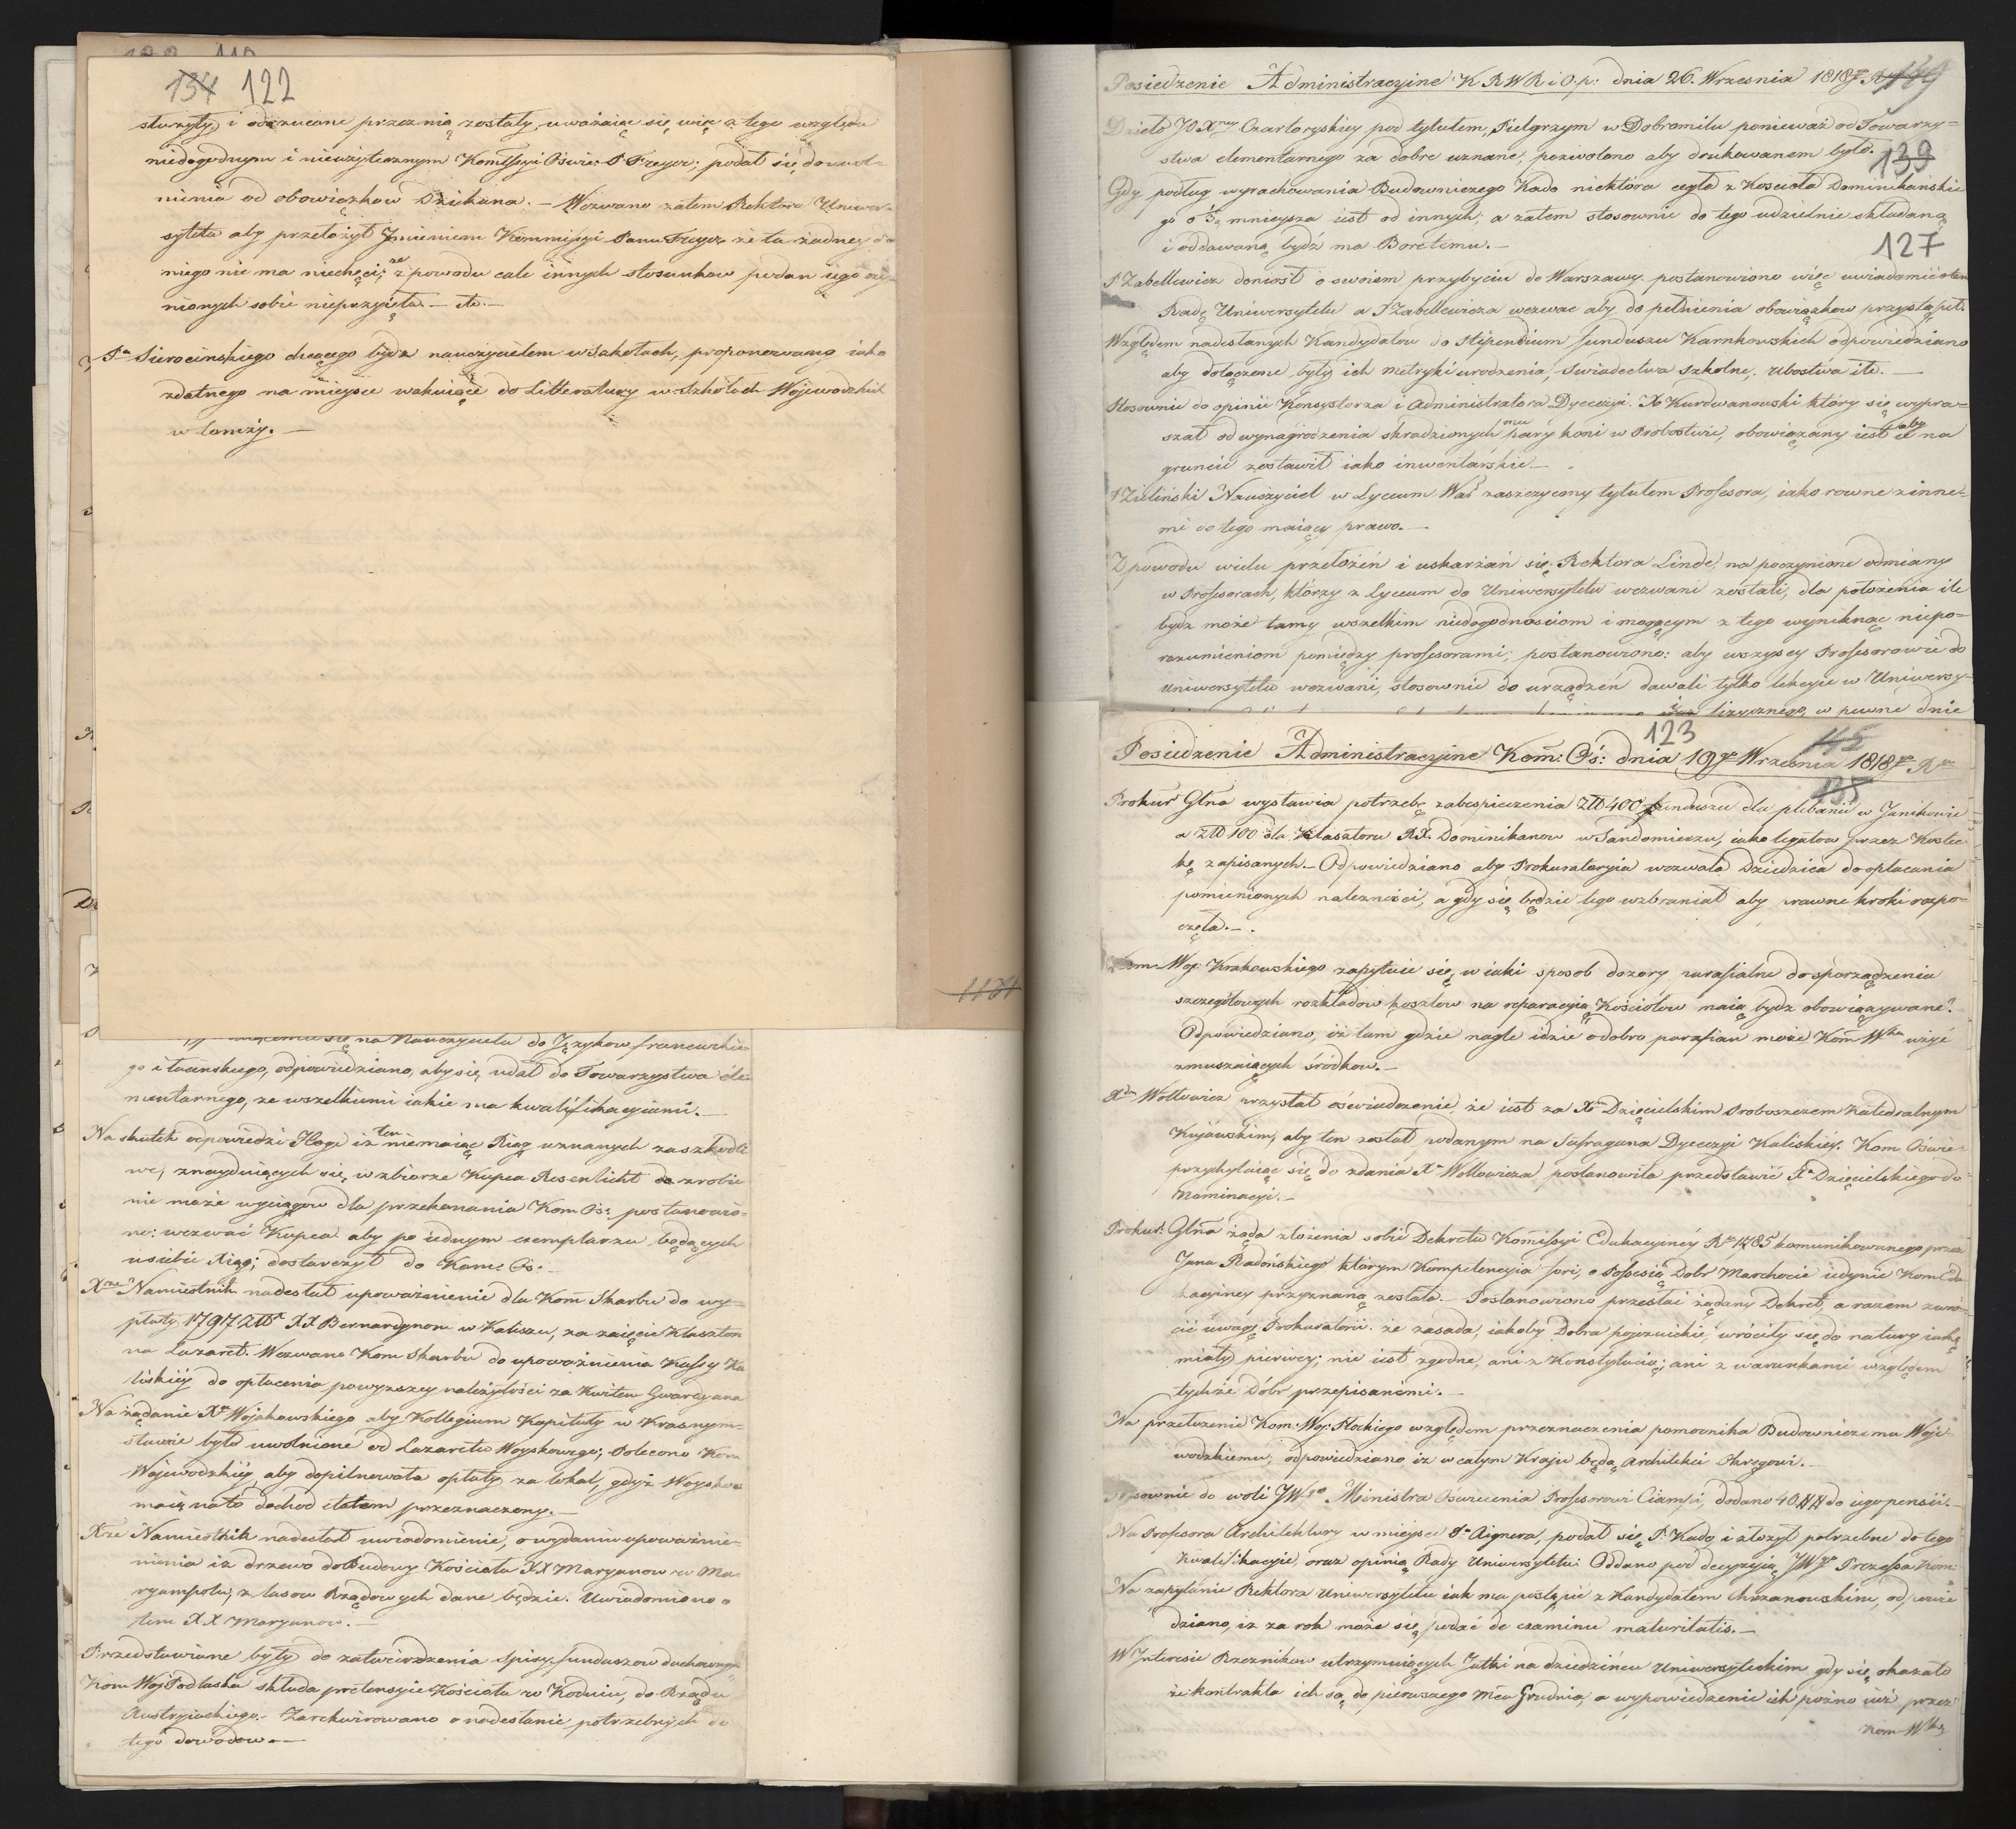 134 122
służyły, i odrzucone przez nią zostały, uważaiąc się więc z tego względu
niedogodnym i nieużytecznym Kommissyi Oświe: P. Freyer; podał się do uwol-
nienia od obowiązkow Dziekana. — Wezwano zatem Rektora Uniwer-
sytetu aby przełożył Jmieniem Kommissyi Panu Freyer że ta żadney do
niego nie ma niechęci; że z powodu cale innych stosunkow podań iego czy-
nionych sobie nieprzyięła. — etc. —
Pa Sierocińskiego chcącego bydź nauczycielem w Szkołach, proponowano iako
zdatnego na mieysce wakuiące do Litteratury w Szkołach Wojewodzkich
w Łomży. —
1121
się na Nauczyciela do Języków francuzkie-
go i łacinskiego, odpowiedziano, aby się udał do Towarzystwa ele-
mentarnego, ze wszelkiemi iakie ma kwalifikacyiami. —
Na skutek odpowiedzi Hoge iż ten niemaiąc Xiąg uznanych za szkodli-
we, znayduiących się w zbiorze Kupca Rosenlicht zrobić
nie może wyciągow dla przekonania Kom Oś: postanowio-
no: wezwać Kupca aby po iednym exemplarzu będących
u siebie Xiąg; dostarczył do Kom: Oś: —
Xże Namiestnik nadesłał upoważnienie dla Kom Skarbu do wy-
płaty 1797 Złł XX Bernardynom w Kaliszu, za zaięcie Klasztoru
na Lazaret. Wezwano Kom Skarbu do upoważnienia Kassy Ka-
liskiey do opłacenia powyższey należytości za Kwitem Gwardyana
Na żądanie Xa Woyakowskiego aby Kollegium Kapituły w Krasnym-
stawie było uwolnione od Lazaretu Woyskowego; Polecono Kom
Wojewodzkiey, aby dopilnowała opłaty za lokal, gdyż Woyskowe
maią na to dochod etatem przeznaczony. —
Xże Namiestnik nadesłał uwiadomienie, o wydaniu upoważnie-
nienia iż drzewo do Budowy Kościoła XX Maryanow w Ma-
ryampolu, z lasow Rządowych dane będzie. Uwiadomiono o
tem XX Maryanow. —
Przedstawione były do zatwierdzenia spisy funduszow duchowny
Kom Woj Podlaska składa pretensyie Kościoła w Kodniu, do Rządu
Austryiackiego. Zarekwirowano o nadesłanie potrzebnych do
tego dowodow. —
Posiedzenie Administracyine K R W R i O p: dnia 26. Wrzesnia 1818go R
139
Dzieło JO Xney Czartoryskiey pod tytułem, Pielgrzym w Dobromilu ponieważ od Towarzy-
stwa elementarnego za dobre uznane, pozwolono aby drukowanem było.
Gdy podług wyrachowania Budowniczego Kado niektóra cegła z Kościoła Dominikańskie-
go o mnieysza iest od innych; a zatem stosownie do tego udzielnie składaną
i oddawaną bydź ma Boretemu. —
127
P Zabellewicz doniosł o swoiem przybyciu do Warszawy. postanowiono więc uwiadomić o tem
Radę Uniwersytetu a P Zabellewicza wezwać aby do pełnienia obowiązkow przystąpił.
Względem nadesłanych Kandydatow do Stipendium funduszu Karnkowskich odpowiedziano
aby dołączone były ich metryki urodzenia, świadectwa szkolne, ubostwa ite. —
Stosownie do opinii Konsystorza i Administratora Dyecezyi. Xo Kurdwanowski który się wypra-
szał od wynagrodzenia skradzionych mu pary koni w Probostwie, obowiązany iest aby ie na
gruncie zostawił iako inwentarskie —
P Zieliński Nauczyciel w Lyceum War zaszczycony tytułem Professora, iako rowne z inne-
mi do tego maiący prawo. —
Z powodu wielu przełożeń i uskarżań się Rektora Linde, na poczynione odmiany
w Professorach, którzy z Lyceum do Uniwersytetu wezwani zostali, dla położenia ile
bydz może tamy wszelkim niedogodnosciom i mogącym z tego wyniknąć niepo-
rozumieniom pomiędzy professorami; postanowiono: aby wszyscy Professorowie do
Uniwersytetu wezwani, stosownie do urządzeń dawali tylko lekcyie w Uniwersy-
fizycznego, w pewne dnie
123
Posiedzenie Administracyine Kom: Oś: dnia 19go Wrzesnia 1818go Ru
135
Prokur Glna wystawia potrzebę zabespieczenia Złł 400 funduszu dla plebanii w Janikowie
a Złł 100 dla Klasztoru XX. Dominikanow w Sandomierzu, iako legatow przez
zapisanych. — Odpowiedziano aby Prokuratoryia wezwała Dziedzica do opłacania
pomienionych należności, a gdy się będzie tego wzbraniał aby prawne kroki rozpo-
częła. —
Kom: Woj: Krakowskiego zapytuie się, w iaki sposob dozory parafialne do sporządzenia
szczegółowych rozkładow kosztow na reparacyią Kościołow maią bydz obowiązywane?
Odpowiedziano, iż tam gdzie nagle idzie o dobro parafian może Kom Wka użyć
zmuszaiących środkow. —
Xdz Wołłowicz przysłał oświadczenie, że iest za Xem Dzięcielskim Proboszczem Katedralnym
Kujawskim, aby ten został podanym na Suffragana Dyecezyi Kaliskiey. Kom Oświe-
przychylaiąc się do zdania Xa Wołłowicza postanowiła przedstawić Xa Dzięcielskiego do
Nominacyi. —
Prokur: Glna żąda złożenia sobie Dekretu Komissyi Edukacyiney Ru 1785 komunikowanego przez
Jana Radońskiego którym Kompetencyia fori, o Possesią Dobr Marchocic iedynie Kom Edu
kacyiney przyznaną została. — Postanowiono przesłać żądany Dekret, a razem zwró-
cić uwagę Prokuratorii. że zasada, iakoby Dobra pojezuickie, wróciły się do natury iaką
miały pierwey; nie iest zgodne, ani z Konstytucią; ani z warunkami względem
tychże Dóbr przepisanemi. —
Na przełożenie Kom: Woj: Płockiego względem przeznaczenia pomocnika Budowniczemu Woje-
wodzkiemu, odpowiedziano, iż w całym Kraju będą Architekci Okręgowi. —
Stosownie do woli JWgo Ministra Oświecenia Professorowi Ciampi, dodano 40 ## do iego pensii. —
Na Professora Architektury w mieysce Pa Aignera, podał się P. Kado, i złożył potrzebne do tego
kwalifikacyie, oraz opinią Rady Uniwersytetu: Oddano pod decyzyią JWgo Prezessa Kom:
Na zapytanie Rektora Uniwersytetu iak ma postąpić z Kandydatem Chrzanowskim, odpowie-
dziano, iż za rok może się podać do examinu maturitatis. —
W Jnteresie Rzeznikow utrzymuiących Jatki na dziedzińcu Uniwersyteckim, gdy się okazało
że kontrakta ich są do pierwszego mca Grudnia, a wypowiedzenie ich pozno iuż przez
Kom Wką